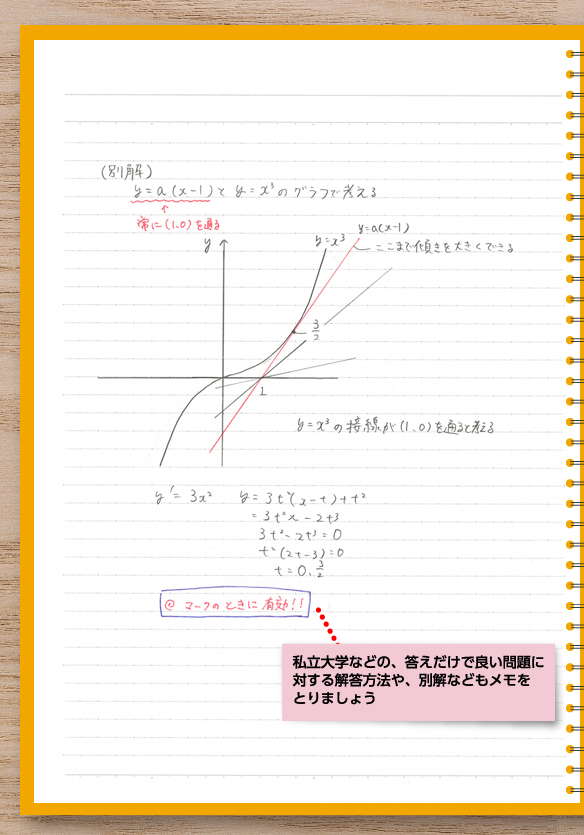 (別解)
y=a(x-1)と y=x³のグラフで考える
↑
常に(1,0)を通る
y
y=x³
y=a(x-1)
ここまで傾きを大きくできる
3/2
1
y=x³の接線が(1,0)を通ると考える
y'=3x²
y=3t²(x-t)+t²
=3t²x-2t³
3t²-2t³=0
t²(2t-3)=0
t=0,3/2
@ マークのときに有効!!
私立大学などの、答えだけで良い問題に
対する解答方法や、別解などもメモを
とりましょう